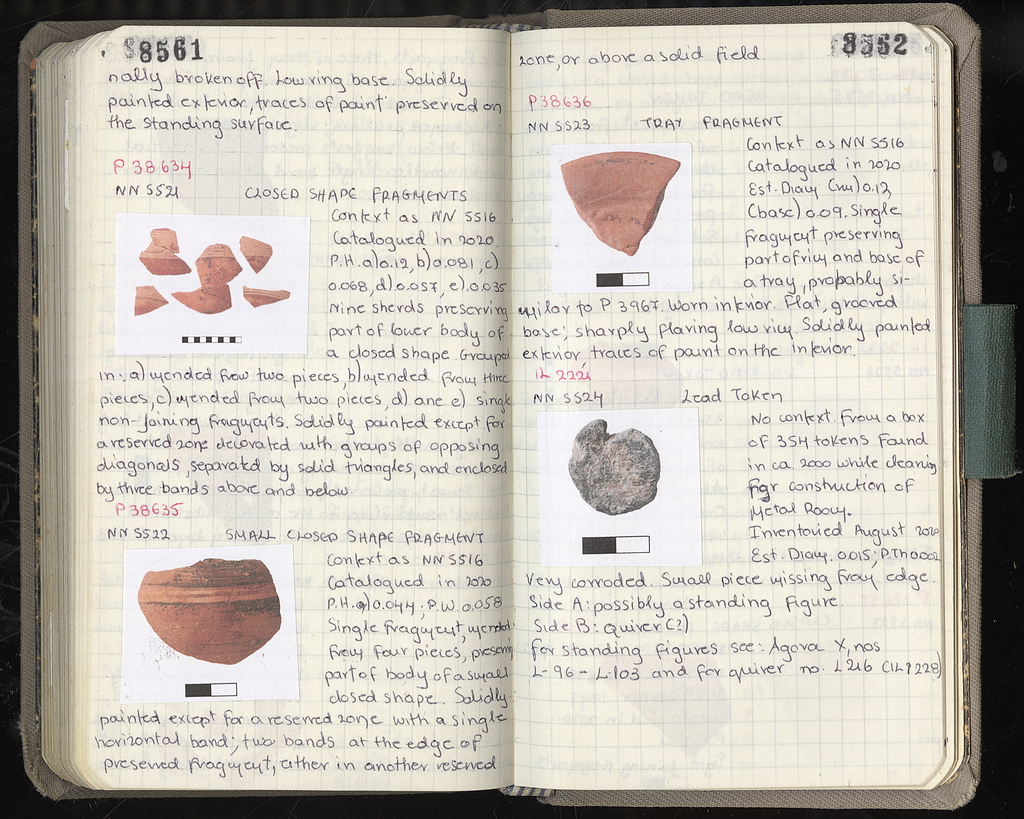 8561
nally broken off. Low ring base. Solidly
painted exterior, traces of paint preserved on
the standing surface.
P 38634
NN 5521 CLOSED SHAPE FRAGMENTS
Context as NN 5516
Catalogued in 2020
P.H. a) 0.12, b) 0.081, c)
0.068, d) 0.057, e) 0.035
Nine sherds preserving
part of lower body of
a closed shape. Grouped
in: a) mended from two pieces, b) mended from three
pieces, c) mended from two pieces, d) ane e) single
non-joining fragments. Solidly painted except for
a reserved zone decorated with groups of opposing
diagonals, separated by solid triangles, and enclosed
by three bands above and below.
P 38635
NN 5522 SMALL CLOSED SHAPE FRAGMENT
Context as NN 5516
Catalogued in 2020
P.H. 0.044; P.W. 0.058
Single fragment, mended
from four pieces, preserving
part of body of a small
closed shape. Solidly
painted except for a reserved zone with a single
horizontal band; two bands at the edge of
preserved fragment, either in another reserved
8552
zone, or above a solid field.
P 38636
NN 5523 TRAY FRAGMENT
Context as NN 5516
Catalogued in 2020
Est. Diam (rim) 0.12
(base) 0.09. Single
fragment preserving
part of rim and base of
a tray, probably si-
milar to P 3967. Worn interior. Flat, grooved
base; sharply flaring low rim. Solidly painted
exterior, traces of paint on the interior.
IL 2221
NN 5524 Lead Token
No context. From a box
of 354 tokens found
in ca. 2000 while cleaning
for construction of
Metal Room.
Inventoried August 2020
Est. Diam. 0.015; P.Th 0.002
Very corroded. Small piece missing from edge.
Side A: possibly a standing figure.
Side B: Quiver (?)
For standing figures see: Agora X, nos
L-96 - L-103 and for quiver no. L 216 (IL 1228)